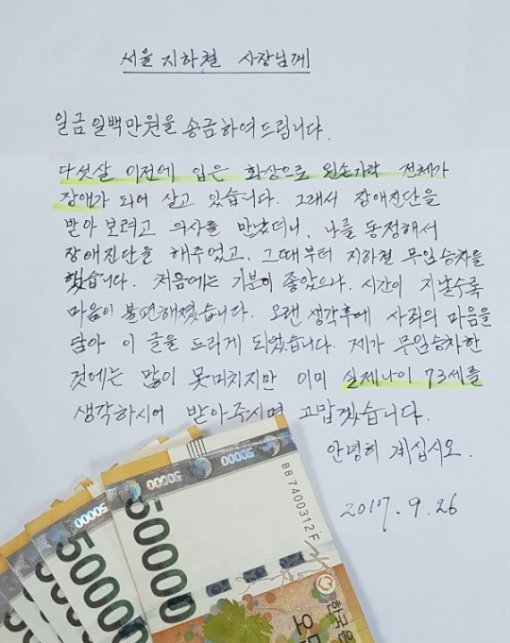 서울 지하철 사장님께
일금 일백만원을 송금하여 드립니다.
다섯살 이전에 입은 화상으로 왼손가락 전체가
장애가 되어 살고 있습니다. 그래서 장애진단을
받아 보려고 의사를 만났더니, 나를 동정해서
장애진단을 해주었고, 그때부터 지하철 무임승차를
했습니다. 처음에는 기분이 좋았으나, 시간이 지날수록
마음이 불편해졌습니다. 오랜 생각후에 사죄의 마음을
담아 이 글을 드리게 되었습니다. 제가 무임승차한
것에는 많이 못미치지만 이미 실제나이 73세를
생각하시어 받아주시면 고맙겠습니다.
안녕히 계십시오.
2017. 9. 26
50000
50000
50000
50000
50000
BB7400312F
50000
50000
한국은
오만